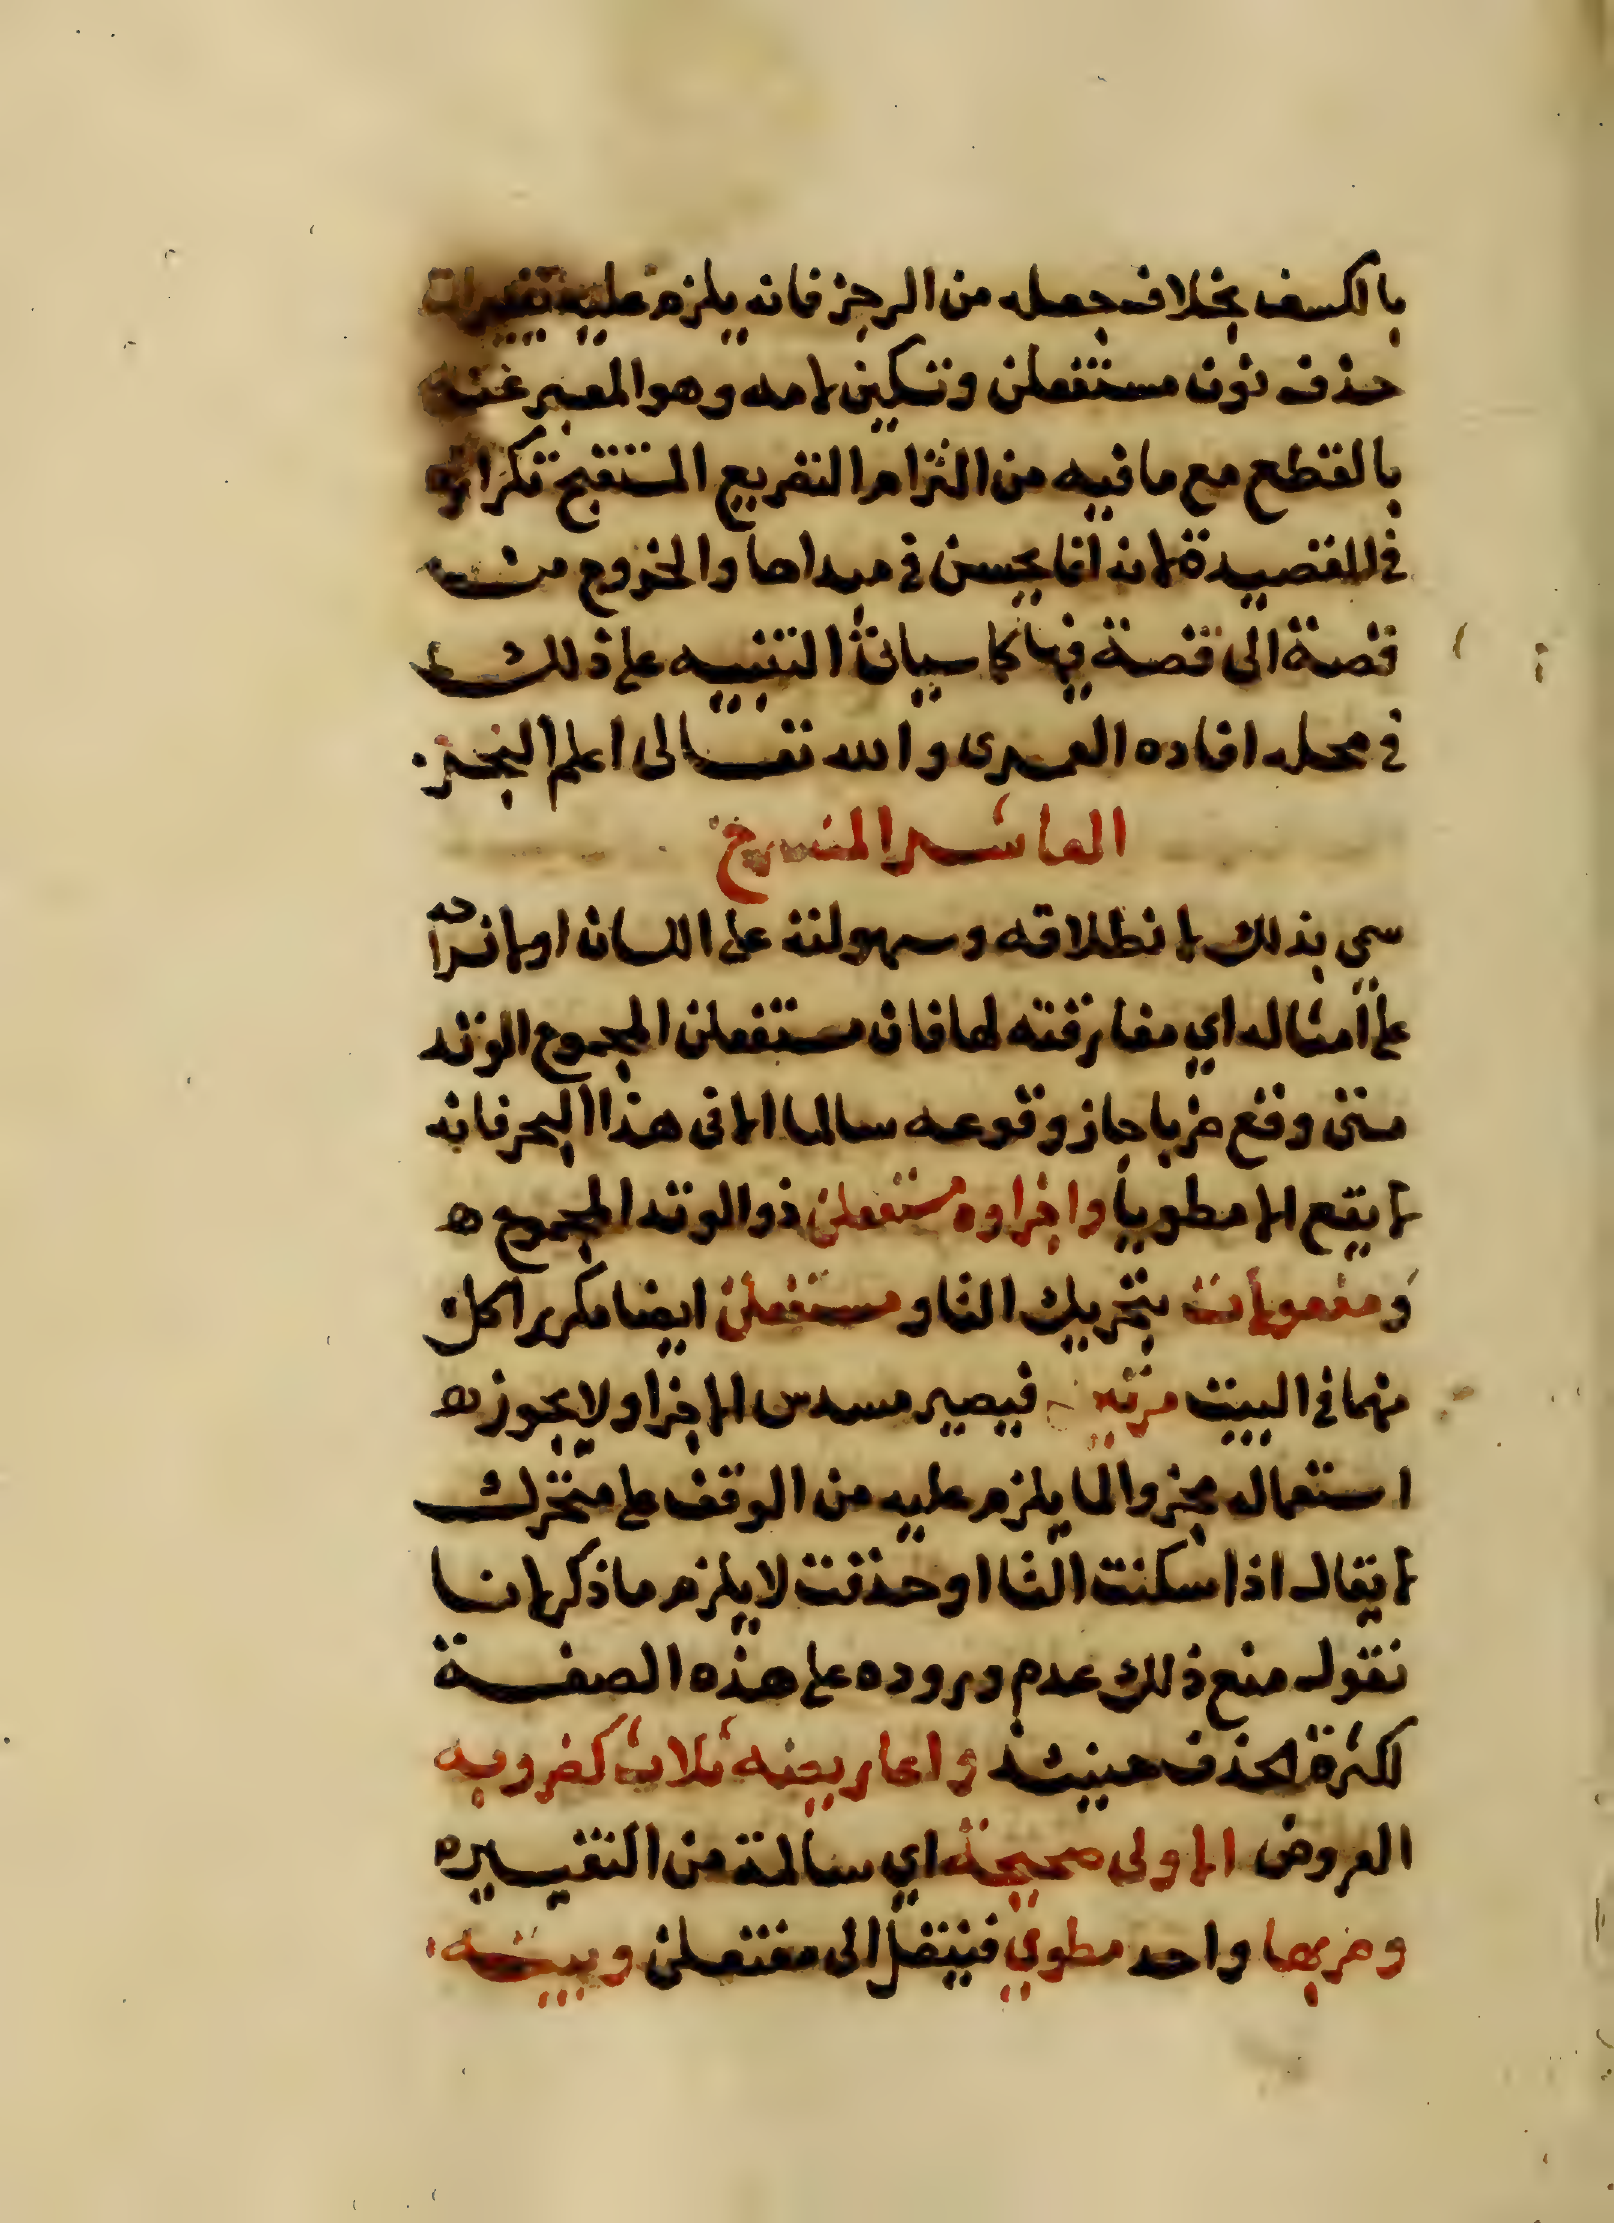 بالكسف بخلاف جعله من الرجز فانه يلزم عليه تغييرات
حذف نون مستفعلن وتسكين لامه وهو المعبر عنه
بالقطع مع ما فيه من التزام التفريع المستقبح تكراره
في القصيدة لانه انما يحسن في مبداها والخروج من
قصة الى قصة فيها كما سياتي التنبيه على ذلك
في محله افاده الصبرى والله تعالى اعلم البحر
العاشر المنسرح
سمي بذلك لانطلاقه وسهولته على اللسان او لانسراحه
على امثاله اي مفارقته لها فان مستفعلن المجموع الوتد
متى وقع ضربا جاز وقوعه سالما الا في هذا البحر فانه
لا يقع الا مطويا واجزاوه مستفعلن ذو الوتد المجموع
ومفعولات بتحريك التا ومستفعلن ايضا مكررا كل
منهما في البيت مرتين فيصير مسدس الاجزا ولا يجوز
استعماله مجزوا لما يلزم عليه من الوقف على متحرك
لا يقال اذا سكنت التا او حذفت لا يلزم ما ذكر لانا
نقول منع ذلك عدم وروده على هذه الصفة
لكثرة الحذف حينئذ واعاريضه ثلاث كضروبه
العروض الاولى صحيحة اي سالمة من التغيير
وضربها واحد مطوي فينتقل الى مفتعلن وبيته